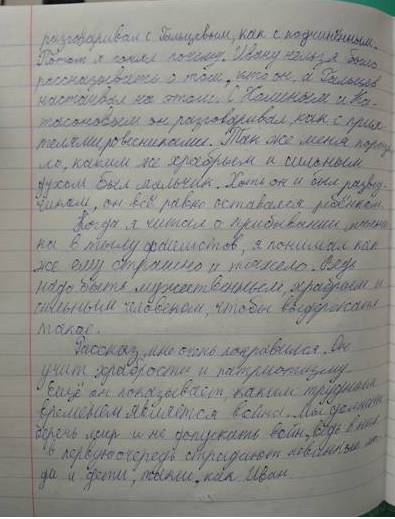 разговаривал с Гальцевым, как с подчинённым.
Потом я понял почему. Ивану нельзя было
рассказывать о том, кто он, а Гальцев
настаивал на этом. С Холиным и Ка-
тасоновым он разговаривал, как с прия-
телями ровесниками. Так же меня порази-
ло, каким же храбрым и сильным
духом был мальчик. Хоть он и был развед-
чиком, он всё равно оставался ребёнком.
Когда я читал о пребывании
на в тылу фашистов, я понимал как
же ему страшно и тяжело. Ведь
надо быть мужественным, храбрым и
сильным человеком, чтобы выдержать
такое.
Рассказ мне очень понравился. Он
учит храбрости и патриотизму.
Ещё он показывает, каким трудным
временем является война. Мы должны
беречь мир и не допускать войн. Ведь в них
в первую очередь страдают невинные лю-
да и дети, такие, как Иван.